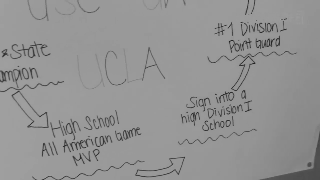 USC
#1 Division I
Point Guard
*State
UCLA
Sign into a
high Division I
School
High School
All American Game
MVP